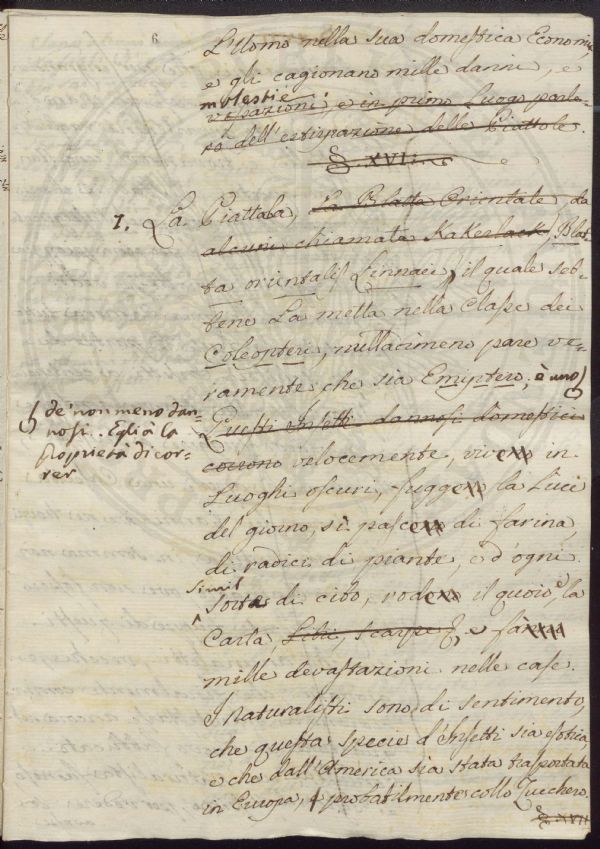 6
L'Uomo nella sua domestica Economia,
e gli cagionano mille danni, e
molestie
vesazioni; e in primo Luogo parle-
rò dell'estirpazione delle Piattole.
§. XVI.
1. La Piattola, La Blatta Orientale, da
alcuni chiamata Kakerlack, Blat-
ta orientalis Linnaei, il quale seb-
bene La metta nella Classe dei
Coleopteri, nulladimeno pare ve-
ramente che sia Emiptero; è uno
de' non meno dan-
nosi. Egli à la
proprietà di cor-
rer
Questi Insetti dannosi domestici
corrono velocemente, vive in
Luoghi oscuri, fugge la Luce
del giorno, si pasce di farina,
di radici di piante, e d'ogni
simil
sorta di cibo, rode il quoio, la
Carta, Libri, scarpe &, e fa
mille devastazioni nelle case.
I Naturalisti sono di sentimento,
che questa specie d'Insetti sia estra,
e che dall'America sia stata trasportata
in Europa, e probabilmente collo Zucchero.
§ XVII